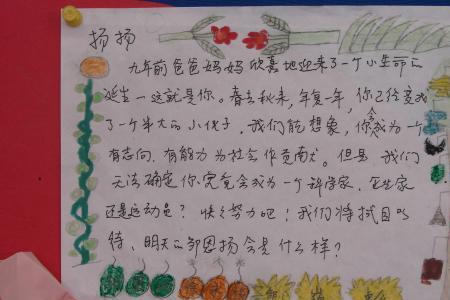 扬扬
九年前爸爸妈妈欣喜地迎来了一个小生命的
诞生—这就是你。春去秋来,年复一年,你已经变成
了一个半大的小伙子,我们能想象,你会成为一个
有志向、有能力为社会作贡献。但是我们
无法确定你究竟会成为一个科学家、企业家
还是运动员?快快努力吧!我们将拭目以
待、明天的邹恩扬会是什么样?